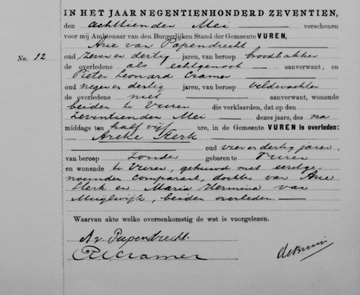 IN HET JAAR NEGENTIENHONDERD ZEVENTIEN,
den achttienden Mei verschenen
voor mij Ambtenaar van den Burgerlijken Stand der Gemeente VUREN,
No. 12
Arie van Papendrecht
oud zeven en dertig jaren, van beroep broodbakker
de overledene als echtgenoot aanverwant, en
Pieter Leonard Cramer
oud negen en dertig jaren, van beroep veldwachter
de overledene niet aanverwant, wonende
beiden te Vuren die verklaarden, dat op den
zeventienden Mei dezes jaars, des na
middags ten half vijf ure, in de Gemeente VUREN is overleden:
Kerk
oud vier en dertig jaren,
van beroep zonder geboren te Vuren
en wonende te Vuren, gehuwd met eerstge-
noemden comparant, dochter van Arie
Kerk en Maria Hermina van
Muijlwijk, beiden overleden.
Waarvan akte welke overeenkomstig de wet is voorgelezen.
A v. Papendrecht
PL Cramer
de Bruin